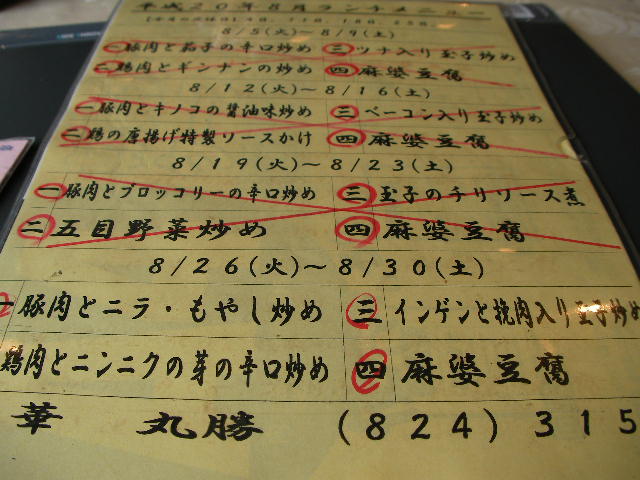 平成20年8月ランチメニュー
8/5(火)～8/9(土)
一 豚肉と茄子の辛口炒め 三 ツナ入り玉子炒め
二 鶏肉とギンナンの炒め 四 麻婆豆腐
8/12(火)～8/16(土)
一 豚肉とキノコの醤油味炒め 三 ベーコン入り玉子炒め
二 鶏の唐揚げ特製ソースかけ 四 麻婆豆腐
8/19(火)～8/23(土)
一 豚肉とブロッコリーの辛口炒め 三 玉子のチリソース煮
二 五目野菜炒め 四 麻婆豆腐
8/26(火)～8/30(土)
一 豚肉とニラ・もやし炒め 三 インゲンと挽肉入り玉子炒め
鶏肉とニンニクの芽の辛口炒め 四 麻婆豆腐
華 丸勝 (824)315